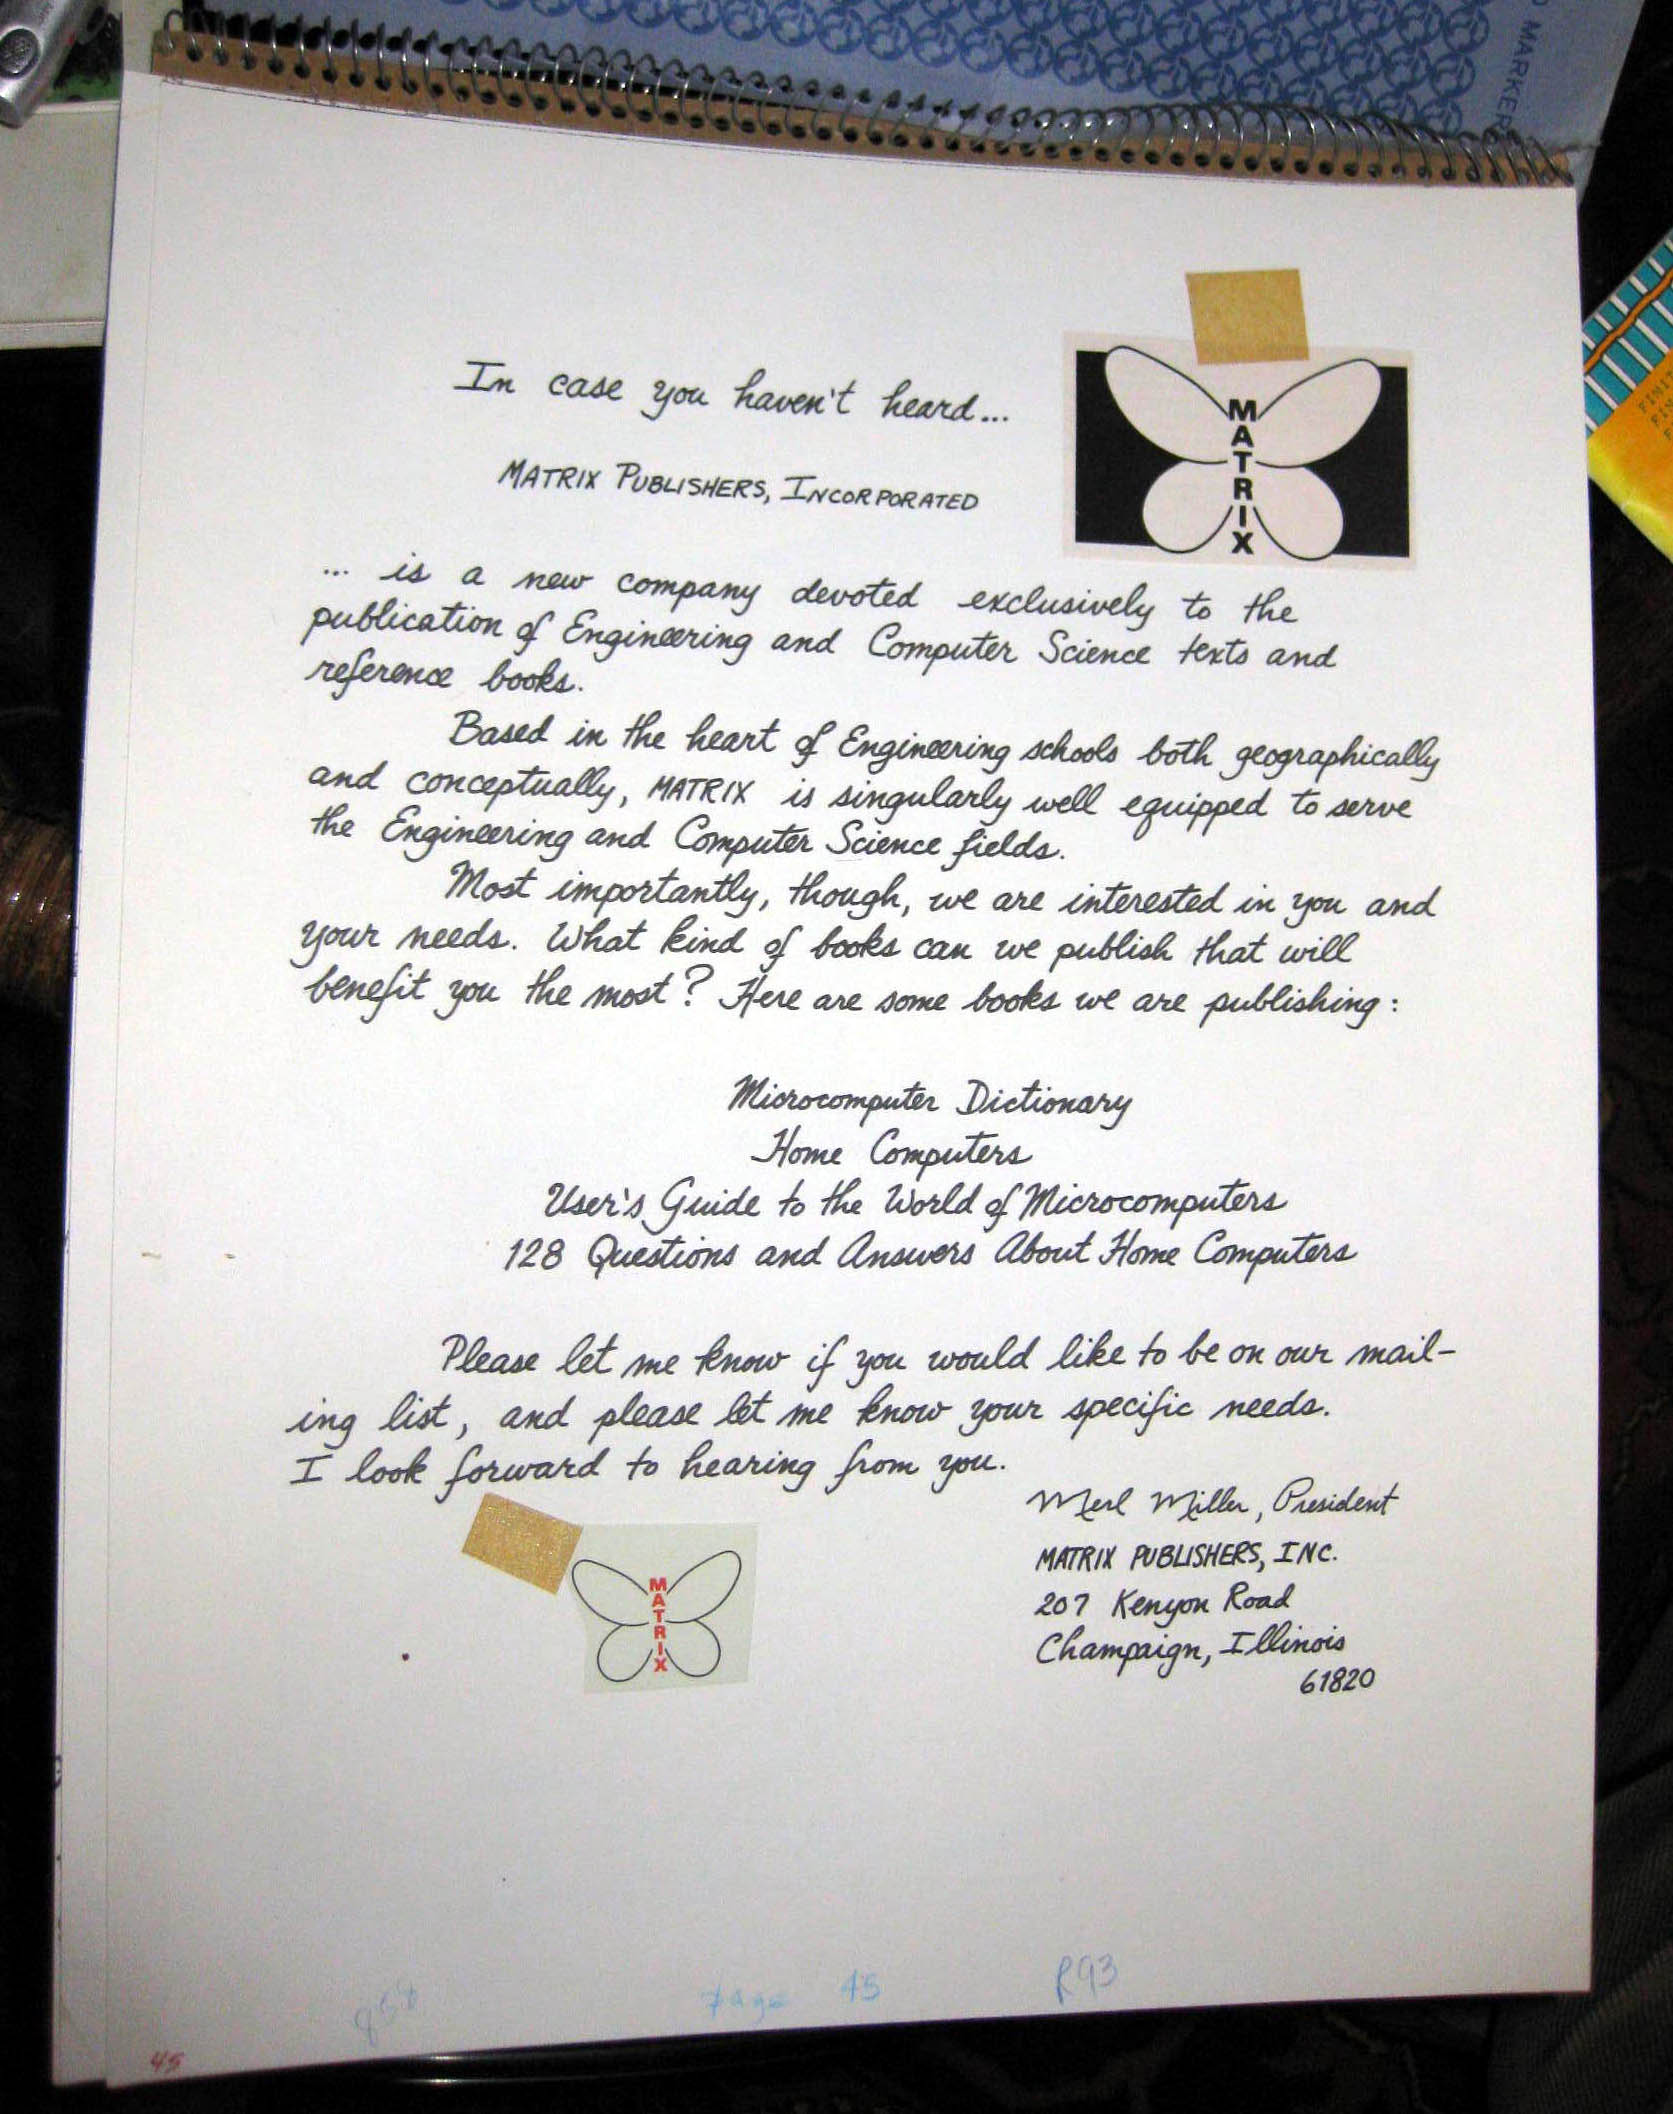 MARKER
In case you haven't heard...
MATRIX PUBLISHERS, INCORPORATED
MATRIX
... is a new company devoted exclusively to the
publication of Engineering and Computer Science texts and
reference books.
Based in the heart of Engineering schools both geographically
and conceptually, MATRIX is singularly well equipped to serve
the Engineering and Computer Science fields.
Most importantly, though, we are interested in you and
your needs. What kind of books can we publish that will
benefit you the most? Here are some books we are publishing:
Microcomputer Dictionary
Home Computers
User's Guide to the World of Microcomputers
128 Questions and Answers About Home Computers
Please let me know if you would like to be on our mail-
ing list, and please let me know your specific needs.
I look forward to hearing from you.
Merl Miller, President
MATRIX PUBLISHERS, INC.
207 Kenyon Road
Champaign, Illinois
61820
MATRIX
page 45 R93
45